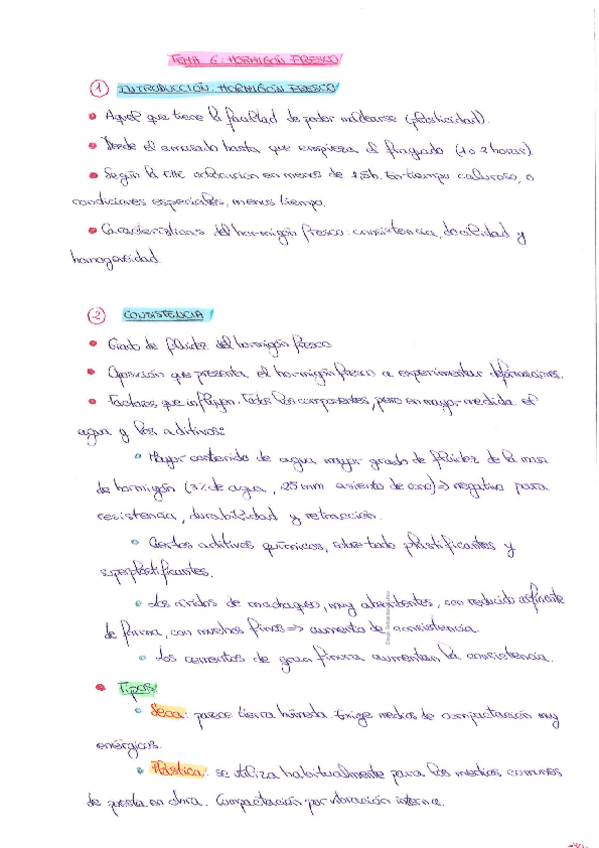 TEMA 6. HORMIGÓN FRESCO
1 INTRODUCCIÓN. HORMIGÓN FRESCO
• Aquel que tiene la facultad de poder moldearse (plasticidad).
• Desde el amasado hasta que empieza el fraguado (1 o 2 horas)
• Según la EHE colocación en menos de 1,5h. En tiempo caluroso, o
condiciones especiales, menos tiempo.
• Características del hormigón fresco: consistencia, docilidad y
homogeneidad.
2 CONSISTENCIA
• Grado de fluidez del hormigón fresco
• Oposición que presenta el hormigón fresco a experimentar deformaciones.
• Factores que influyen. Todos los componentes, pero en mayor medida el
agua y los aditivos:
• Mayor contenido de agua mayor grado de fluidez de la masa
de hormigón (3% de agua, 25 mm asiento de cono) => negativo para
resistencia, durabilidad y retracción.
• Ciertos aditivos químicos, sobre todo plastificantes y
superplastificantes.
• Los áridos de machaqueo, muy absorbentes, con reducido coeficiente
de forma, con muchos finos => aumento de consistencia.
• Los cementos de gran finura aumentan la consistencia.
• Tipos:
• Seca: parece tierra húmeda. Exige medios de compactación muy
enérgicos.
• Plástica: se utiliza habitualmente para los medios comunes
de puesta en obra. Compactación por vibración interna.